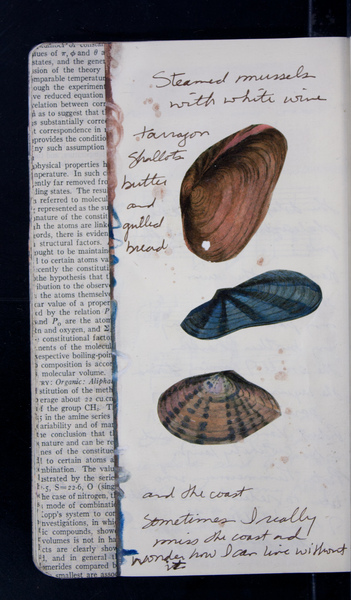 ues of π, ϕ and θ a
states, and the gener
ssion of the theory
mparable temperatur
ough the experiment
ve reduced equation
relation between corr
n as to suggest that
s substantially corre
t correspondence in
provides the condition
ny such assumption
physical properties h
nperature. In such c
ently far removed fro
ling states. The resul
n referred to molecul
represented as the su
nature of the constit
h the atoms are link
ords, there is eviden
structural factors.
ought to be maintain
l to certain atoms va
cently the constituti
he hypothesis that t
bution to the observe
the atoms themselve
ar value of a proper
ed by the relation P
and P₀ are the atom
n and oxygen, and Σ
constitutional factor
nents of the molecul
espective boiling-poin
composition is accor
molecular volume.
xv: Organic: Alipha
stitution of the meth
erage about 22 cu.cm
f the group CH₂. T
; in the amine series
ariability and of man
he conclusion that t
nature and can be re
nes of the constitue
l to certain atoms a
nbination. The valu
strated by the series
·5, S=22·6, O (sing
he case of nitrogen, t
mode of combinati
opp's system to con
nvestigations, in whic
ic compounds, show
volumes is not in ha
cts are clearly show
, and in general t
omerides compared b
smallest are assoc
Steamed mussels
with white wine
Tarragon
Shallots
butter
and
grilled
bread
and the coast
Sometimes I really
miss the coast and
wonder how I can live without
it